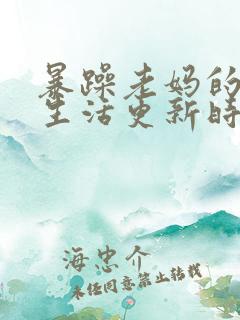 暴躁老妈的
生活更新时
海忠介
未经同意禁止转载